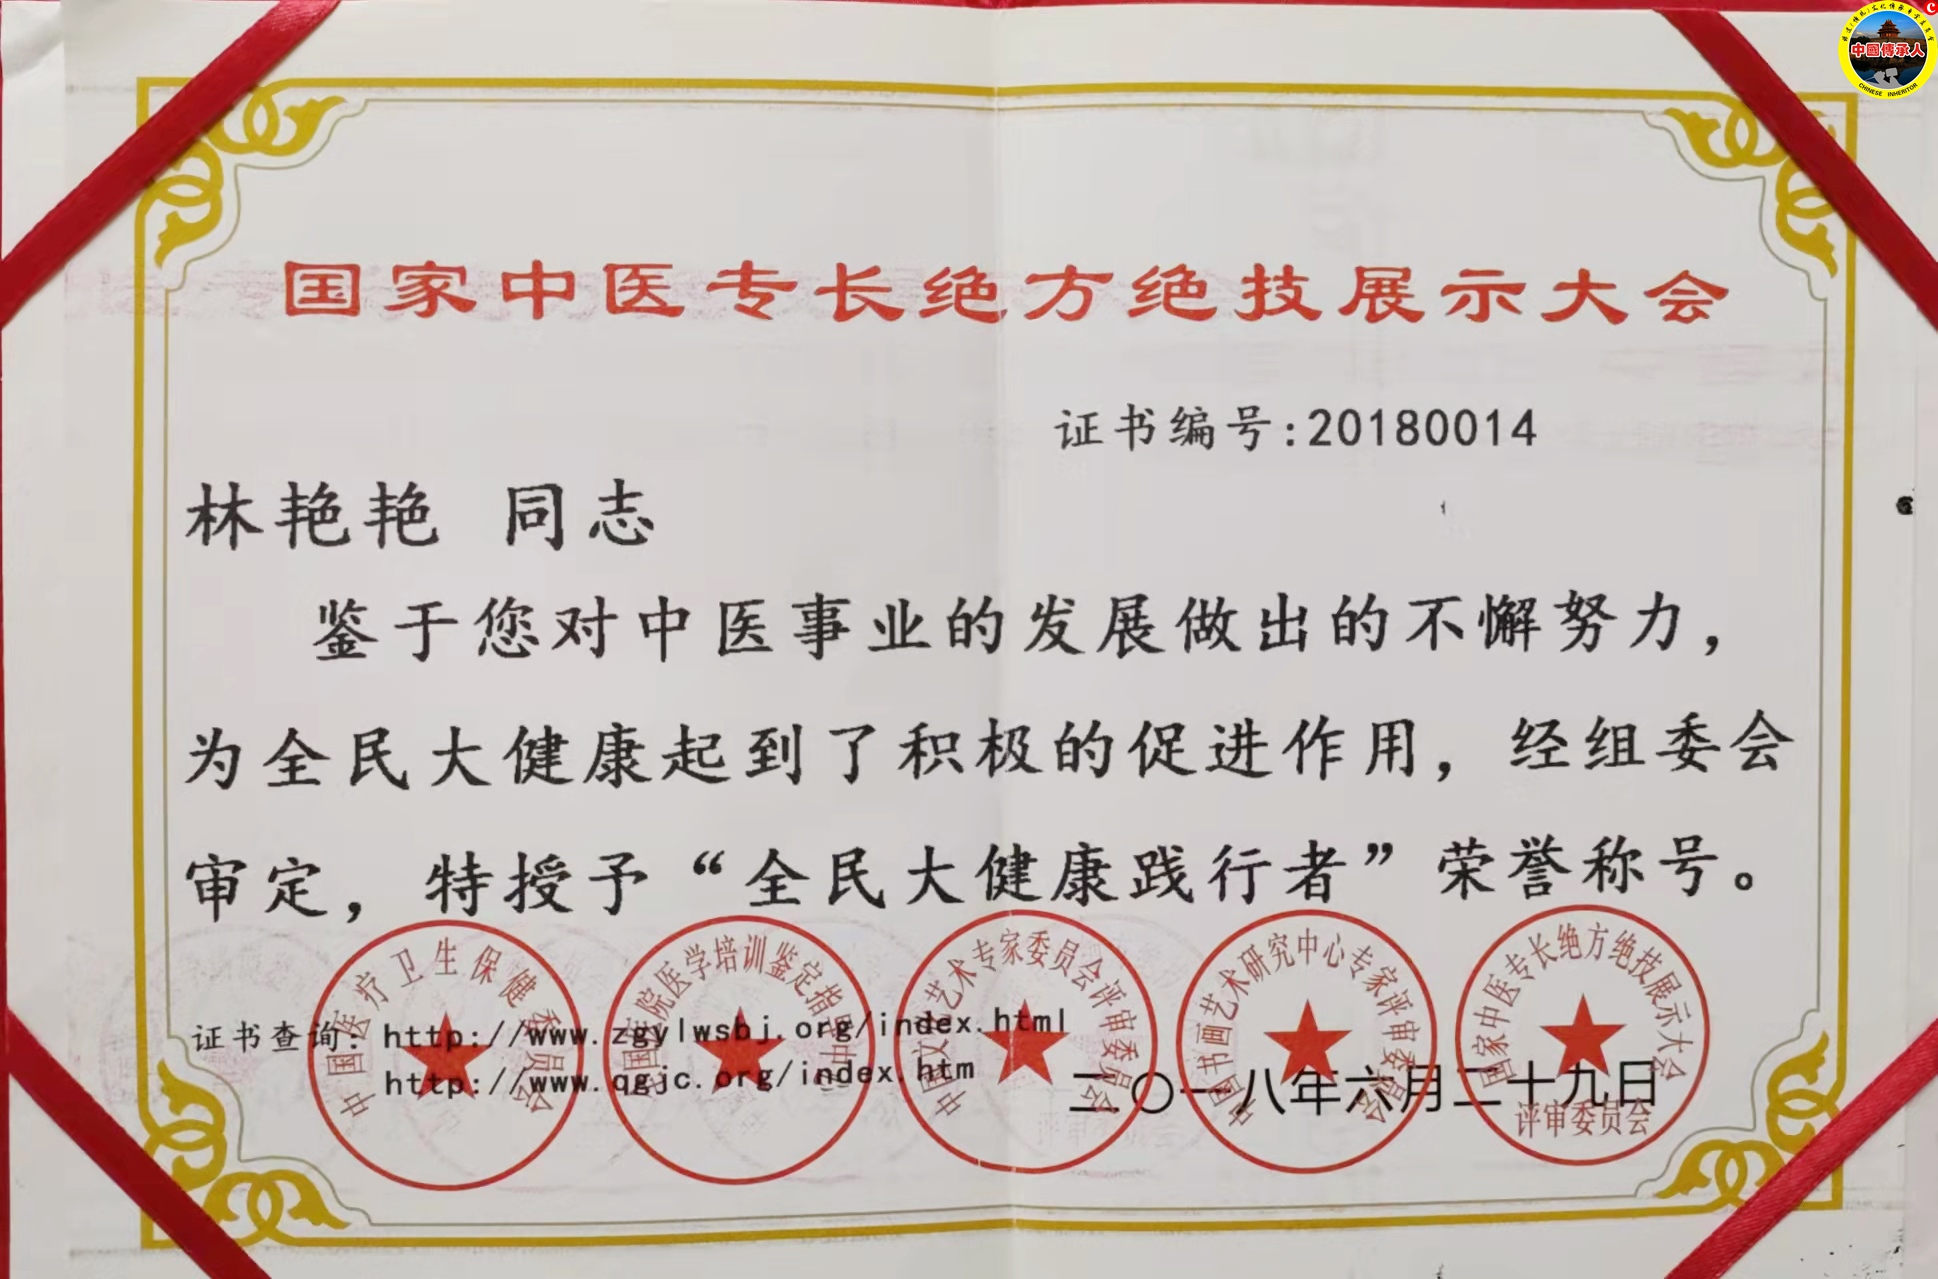 中國傳承人
CHINESE INHERITOR
国家中医专长绝方绝技展示大会
证书编号:20180014
林艳艳 同志
鉴于您对中医事业的发展做出的不懈努力，
为全民大健康起到了积极的促进作用，经组委会
审定，特授予“全民大健康践行者”荣誉称号。
中国医疗卫生保健委员会
中国书画艺术研究中心专家评审委员会
国家中医专长绝方绝技展示大会
评审委员会
证书查询：http://www.zgylwsbj.org/index.html
http://www.qgjc.org/index.htm
二〇一八年六月二十九日